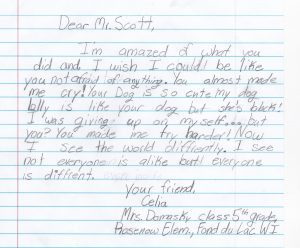 Dear Mr. Scott,
I'm amazed of what you
did and I wish I could be like
you not afraid of anything. You almost made
me cry! Your Dog is so cute my dog
is like your dog but she's black!
I was giving up on my self... but
you? You made me try harder! Now
I see the world diffrently. I see
not everyone is alike but! everyone
is diffrent.
Your friend,
Celia
Mrs. Domasky class 5th grade,
Rosenow Elem., Fond du Lac WI